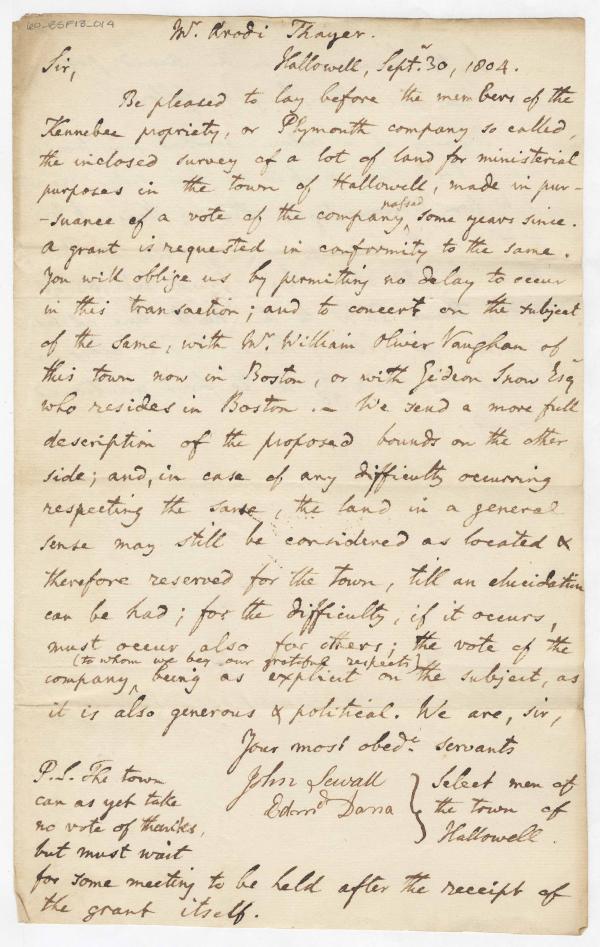 60_BSF13_014
Mr. Arodi Thayer.
Sir,
Hallowell, Sept. 30, 1804.
Be pleased to lay before the members of the
Kennebec propriety, or Plymouth company so called,
the inclosed survey of a lot of land for ministerial
purposes in the town of Hallowell, made in pur-
-suance of a vote of the company passed some years since.
A grant is requested in conformity to the same.
You will oblige us by permitting no delay to occur
in this transaction; and to concert on the subject
of the same, with Mr. William Oliver Vaughan of
this town now in Boston, or with Gideon Snow Esqr
who resides in Boston. — We send a more full
description of the proposed bounds on the other
side; and, in case of any difficulty occurring
respecting the same, the land in a general
sense may still be considered as located &
therefore reserved for the town, till an elucidation
can be had; for the difficulty, if it occurs,
must occur also for others; the vote of the
company, (to whom we beg our grateful respects) being as explicit on the subject, as
it is also generous & political. We are, sir,
Your most obedt. servants
John Sewall
Dana
Select men of
the town of
Hallowell.
P.S. The town
can as yet take
no vote of thanks,
but must wait
for some meeting to be held after the receipt of
the grant itself.